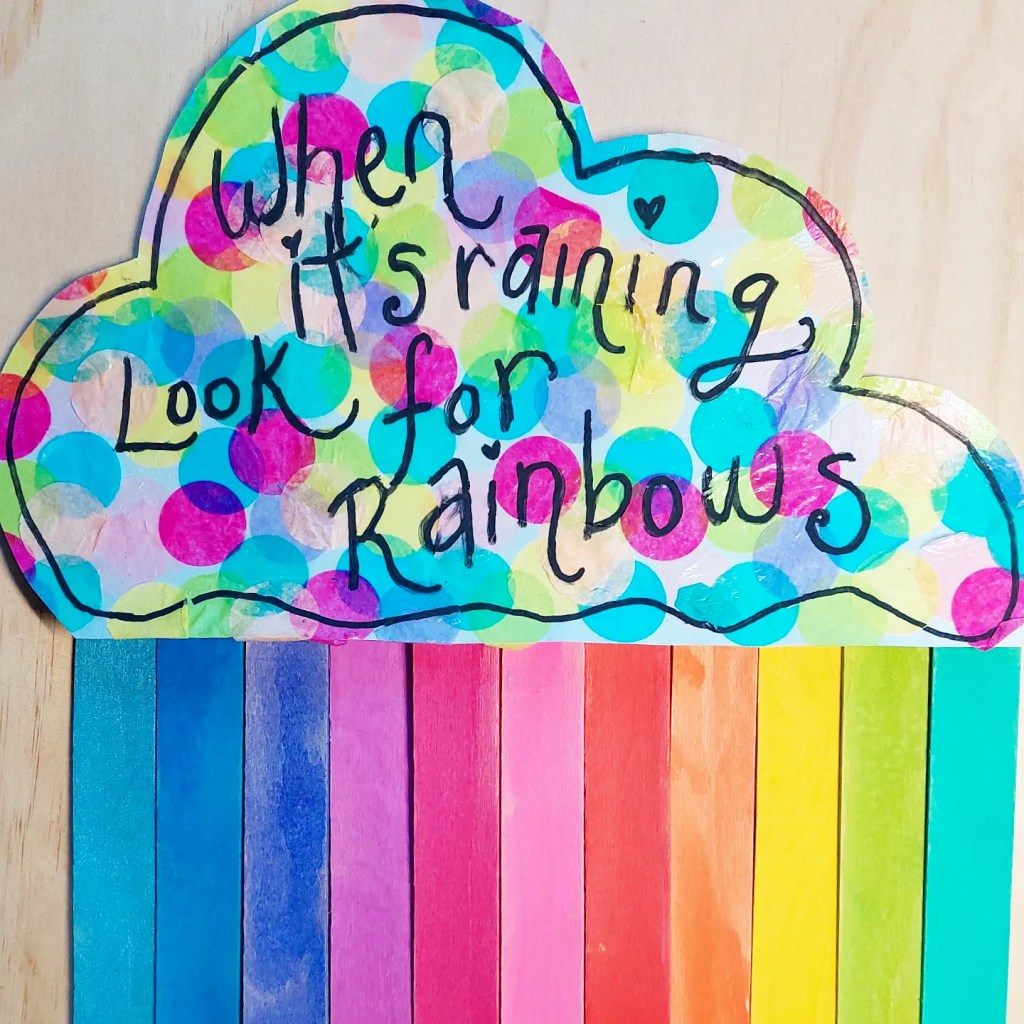 When
it's raining
Look for
Rainbows